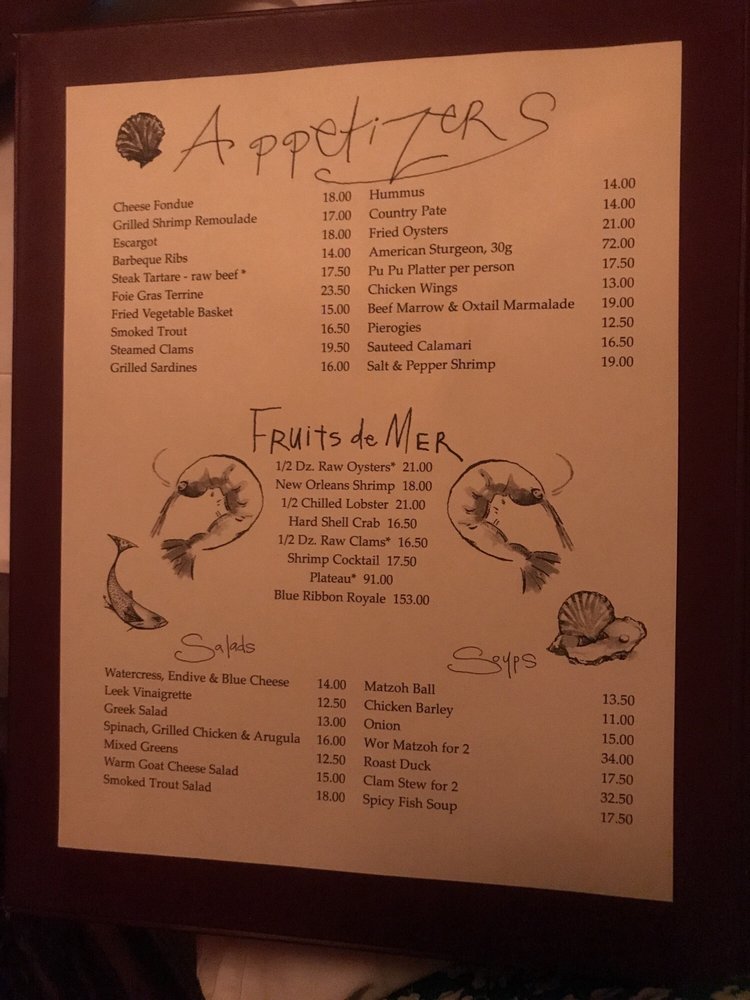 Appetizers
Cheese Fondue 18.00
Grilled Shrimp Remoulade 17.00
Escargot 18.00
Barbeque Ribs 14.00
Steak Tartare - raw beef * 17.50
Foie Gras Terrine 23.50
Fried Vegetable Basket 15.00
Smoked Trout 16.50
Steamed Clams 19.50
Grilled Sardines 16.00
Hummus 14.00
Country Pate 14.00
Fried Oysters 21.00
American Sturgeon, 30g 72.00
Pu Pu Platter per person 17.50
Chicken Wings 13.00
Beef Marrow & Oxtail Marmalade 19.00
Pierogies 12.50
Sauteed Calamari 16.50
Salt & Pepper Shrimp 19.00
Fruits de Mer
1/2 Dz. Raw Oysters* 21.00
New Orleans Shrimp 18.00
1/2 Chilled Lobster 21.00
Hard Shell Crab 16.50
1/2 Dz. Raw Clams* 16.50
Shrimp Cocktail 17.50
Plateau* 91.00
Blue Ribbon Royale 153.00
Salads
Watercress, Endive & Blue Cheese 14.00
Leek Vinaigrette 12.50
Greek Salad 13.00
Spinach, Grilled Chicken & Arugula 16.00
Mixed Greens 12.50
Warm Goat Cheese Salad 15.00
Smoked Trout Salad 18.00
Soups
Matzoh Ball 13.50
Chicken Barley 11.00
Onion 15.00
Wor Matzoh for 2 34.00
Roast Duck 17.50
Clam Stew for 2 32.50
Spicy Fish Soup 17.50